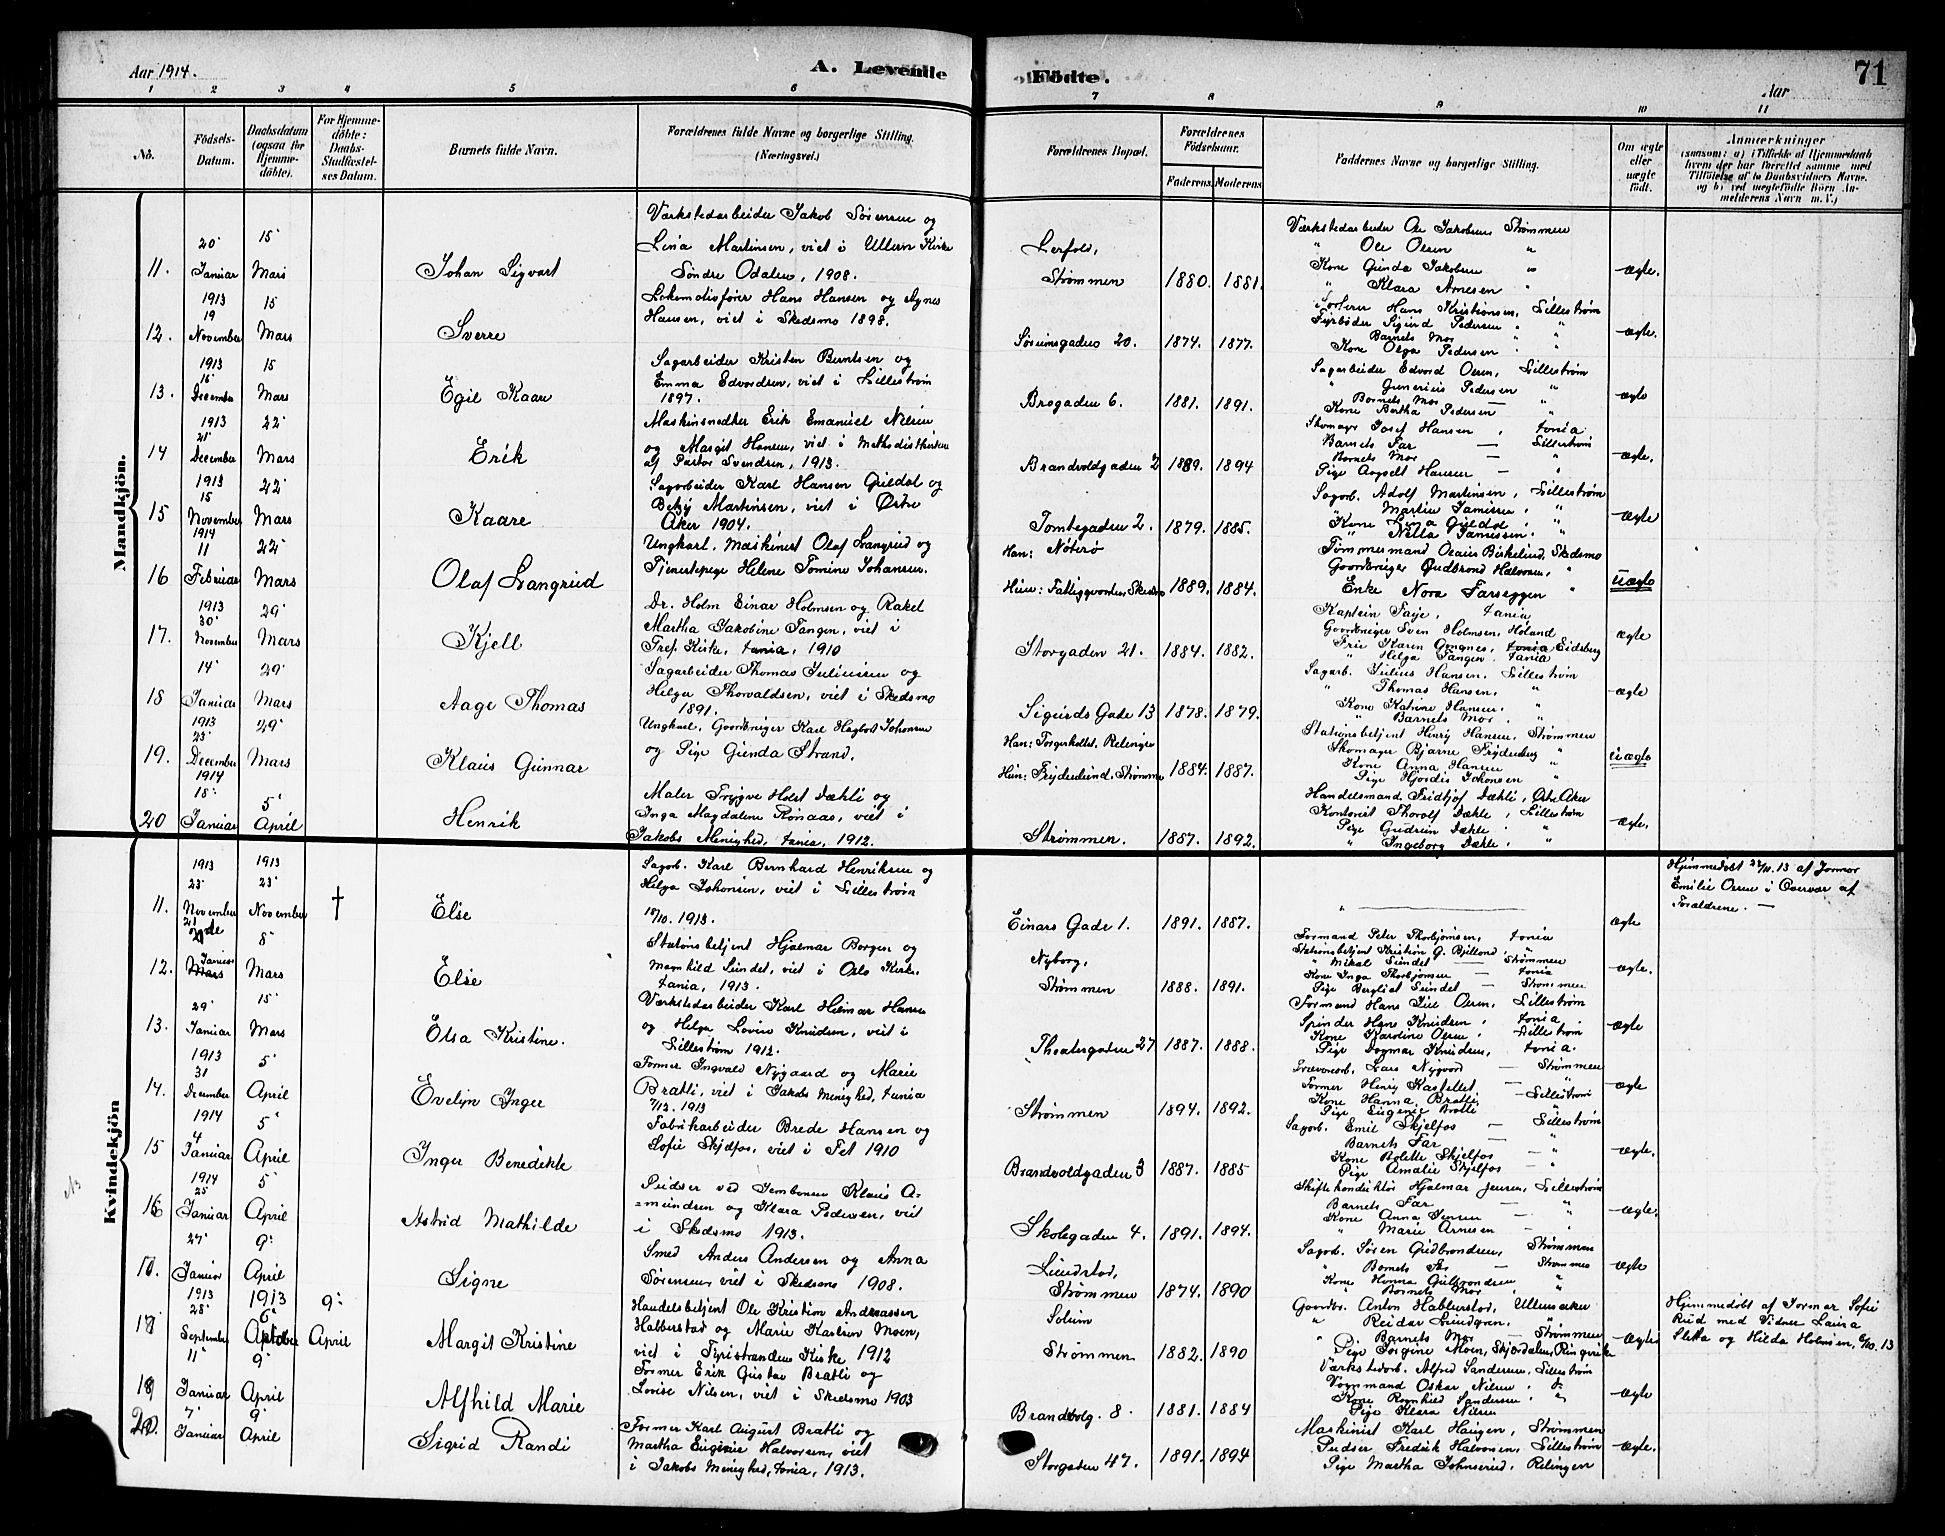 Aar 1914.
A. Levende
Födte.
71
Aar
1 2 3 4 5 6 7 8 9 10 11
No.
Födsels-
Datum.
Daabsdatum
(ogsaa for
Hjemme-
döbte).
For Hjemme-
döbte:
Daabs-
Stadfæstel-
ses Datum.
Barnets fulde Navn.
Forældrenes fulde Navne og borgerlige Stilling.
(Næringsvei.)
Forældrenes Bopæl.
Forældrenes
Födselsaar.
Faderens.
Moderens.
Faddernes Navne og borgerlige Stilling.
Om ægte
eller
uægte
födt.
Anmærkninger
(saasom: a) i Tilfælde af Hjemmedaab
hvem der har forrettet samme med
Tilföielse af to Daabsvidners Navne,
og b) ved uægtefödte Börn An-
melderens Navn m. V.)
Mandkjön.
11.
20 Januar
15 Mars
Johan Sigvart
Værkstedarbeider Jakob Sörensen og
Lina Martinsen, viet i Ullern Kirke
Söndre Odalen, 1908.
Lerfold,
Strømmen
1880. 1881.
Værkstedarbeider Ole Jakobsen, Strømmen
" Ole Olsen "
Kone Gunda Jakobsen "
" Klara Arnesen "
ægte.
12.
1913
19 November
15 Mars
Sverre
Lokomotivfører Hans Hansen og Agnes
Hansen, viet i Skedsmo 1898.
Sørumsgaden 20.
1874. 1877.
Sorterer Hans Kristiansen, Lillestrøm
Fyrbøder Sigurd Pedersen " "
Barnets Mor " "
Kone Olga Pedersen "
ægte.
13.
1913
16 December
15 Mars
Egil Kaare
Sagarbeider Kristen Berntsen og
Emma Edvardsen, viet i Lillestrøm
1897.
Brogaden 6.
1881. 1891.
Sagarbeider Edvard Olsen, Lillestrøm
" Gunerius Pedersen "
Barnets Mor — "
Kone Bertha Pedersen "
ægte
14
1913
21 December
22 Mars
Erik
Maskinsnedker Erik Emanuel Nilsen
og Margit Hansen, viet i Methodistkirken
af Pastor Svendsen, 1913.
Brandvoldgaden 2
1889. 1894
Skomager Josef Hansen, Xania
Barnets Far — Lillestrøm
Barnets Mor — "
Pige Augselt Hansen — "
ægte.
15
1913
15 November
22 Mars
Kaare
Sagarbeider Karl Hansen Guldal og
Betsy Martinsen, viet i Østre
Aker 1904.
Tomtegaden 2.
1879. 1885.
Sagarb. Adolf Martinsen, Lillestrøm
" Martin Jamissen, "
Kone Lina Guldal, "
" Nella Jamissen. "
ægte
16
1914
11 Februar
22 Mars
Olaf Langrud
Ungkarl, Maskinist Olaf Langrud og
Tjenestepige Helene Tomine Johansen.
Han: Nøterø
Hun: Fattiggaarden, Skedsmo
1889. 1884.
Tømmermand Olaus Birkelund, Skedsmo
Gaardbruger Gudbrand Halvorsen, "
Enke Nora Farseggen "
uægte
17.
1913
30 November
29 Mars
Kjell
Dr. Holm Einar Holmsen og Rakel
Martha Jakobine Tangen, viet i
Tref. Kirke, Xania, 1910
Storgaden 21.
1884. 1882.
Kaptein Faye, Xania
Gaardbruger Sven Holmsen, Høland
Frue Karen Gragnes, Xania Eidsberg
" Helga Tangen. Xania
ægte
18
14 Januar
29 Mars
Aage Thomas
Sagarbeider Thomas Juliussen og
Helga Thorvaldsen, viet i Skedsmo
1891.
Sigurds Gade 13
1878. 1879.
Sagarb. Julius Hansen, Lillestrøm
" Thomas Hansen. "
Kone Katrine Hansen. "
" Barnets Mor. "
ægte
19.
1913
23 December
29 Mars
Klaus Gunnar
Ungkarl, Gaardbruger Karl Hagbart Johansen
og Pige Gunda Strand.
Han: Torgerholtet, Relingen
Hun: Frydenlund, Strømmen
1884. 1887.
Stationsbetjent Henry Hansen, Strømmen
Skomager Bjarne Frydenberg "
Kone Anna Hansen "
Pige Hjørdis Johansen "
uægte
20
1914
18 Januar
5 April
Henrik
Maler Trygve Holst Dæhli og
Inga Magdalene Rønaas, viet i
Jakobs Menighed, Xania, 1912.
Strømmen.
1887. 1892.
Handelsmand Fridtjof Dæhli, Østre Aker
Kontorist Thorolf Dæhli, Lillestrøm
Pige Gudrun Dæhli, "
" Ingeborg Dæhli, "
ægte.
Kvindekjön
11.
1913
23 November
1913
23 November
†
Else
Sagarb. Karl Bernhard Henriksen og
Helga Johansen, viet i Lillestrøm
18/10. 1913.
Einars Gade 1.
1891. 1887.
ægte
Hjemmedøbt 23/11. 13 af Jormor
Emilie Olsen i Overvær af
Forældrene. —
12.
Januar
Mars
8 Mars
Else
Stationsbetjent Hjalmar Borgen og
Magnhild Sundet, viet i Oslo Kirke,
Xania, 1913.
Nyborg,
Strømmen
1888. 1891.
Formand Peter Thorbjørnsen, Xania
Stationsbetjent Kristian G. Bjelland, "
" Mikal Sundet — Strømmen
Kone Inga Thorbjørnsen — Xania
Pige Bergliot Sundet — Strømmen
ægte.
13.
29 Januar
15 Mars
Elsa Kristine.
Værkstedarbeider Karl Hilmar Hansen
og Helga Lovise Knudsen, viet i
Lillestrøm 1912.
Theatergaden 27
1887. 1888.
Formand Hans Juel Olsen, Lillestrøm
Spinder Hans Knudsen, Xania
Kone Karoline Olsen, Lillestrøm
Pige Dagmar Knudsen, Xania.
ægte
14.
1913
31 December
5 April
Evelyn Inger
Former Ingvald Nygaard og Marie
Bratli, viet i Jakobs Menighed, Xania
7/12. 1913
Strømmen
1894. 1892.
Lars Nygard — Strømmen
Former Henry Kastellet — "
Kone Hanna Bratli — Lillestrøm
Pige Eugenie Bratli "
ægte
15
1914
4 Januar
5 April
Inger Benedikte
Fabrikarbeider Brede Hansen og
Sofie Skjelfos, viet i Fet 1910
Brandvoldgaden 3
1887. 1885
Sagarb. Emil Skjelfos — Lillestrøm
Barnets Far — "
Kone Bolette Skjelfos — "
Pige Amalie Skjelfos — "
ægte.
16
1914
25 Januar
5 April
Astrid Mathilde
Pudser ved Jernbanen Klaus A-
=mundsen og Klara Pedersen, viet
i Skedsmo 1913.
Skolegaden 4.
1891. 1894.
Skiftekonduktør Hjalmar Jensen, Lillestrøm
Barnets Far — "
Kone Anna Jensen — "
" Marie Arnesen — "
ægte.
17.
27 Januar
9 April
Signe
Smed Anders Andersen og Anna
Sørensen, viet i Skedsmo 1908.
Lundstad,
Strømmen
1874. 1890
Sagarb. Søren Gudbrandsen, Strømmen
" Barnets Far — Strømmen
Kone Hanna Gulbrandsen "
" Barnets Mor, "
ægte
18
1913
28 September
1913
6 October
9 April
Margit Kristine
Handelsbetjent Ole Kristian Andreassen
Habberstad og Marie Karlsen Moen,
viet i Tyristranden Kirke 1912
Solum
Strømmen
1882. 1890
Gaardbr. Anton Habberstad, Ullensaker
" Reidar Lundgren, "
" Barnets Mor — Strømmen
Pige Jorgine Moen, Skjærdalen, Ringerike
ægte
Hjemmedøbt af Jormor Sofie
Rud med Vidner Laura
Sletta og Hilda Holmsen, 6/10. 13
19
11 Januar
9 April
Alfhild Marie
Former Erik Gustav Bratli og
Lovise Nilsen, viet i Skedsmo 1903
Brandvolg. 8.
1881. 1884
Værkstedarb. Alfred Sandersen, Lillestrøm
Vognmand Oskar Nilsen, "
Kone Ragnhild Sandersen "
Pige Klara Nilsen
ægte
20.
7 Januar
9 April
Sigrid Randi
Former Karl August Bratli og
Martha Eugenie Halvorsen, viet
i Jakobs Menighed, Xania, 1913.
Storgaden 47.
1891. 1894
Maskinist Karl Haugen, Strømmen
Pudser Fredrik Halvorsen, Lillestrøm
Pige Martha Johnsrud, Relingen
ægte.